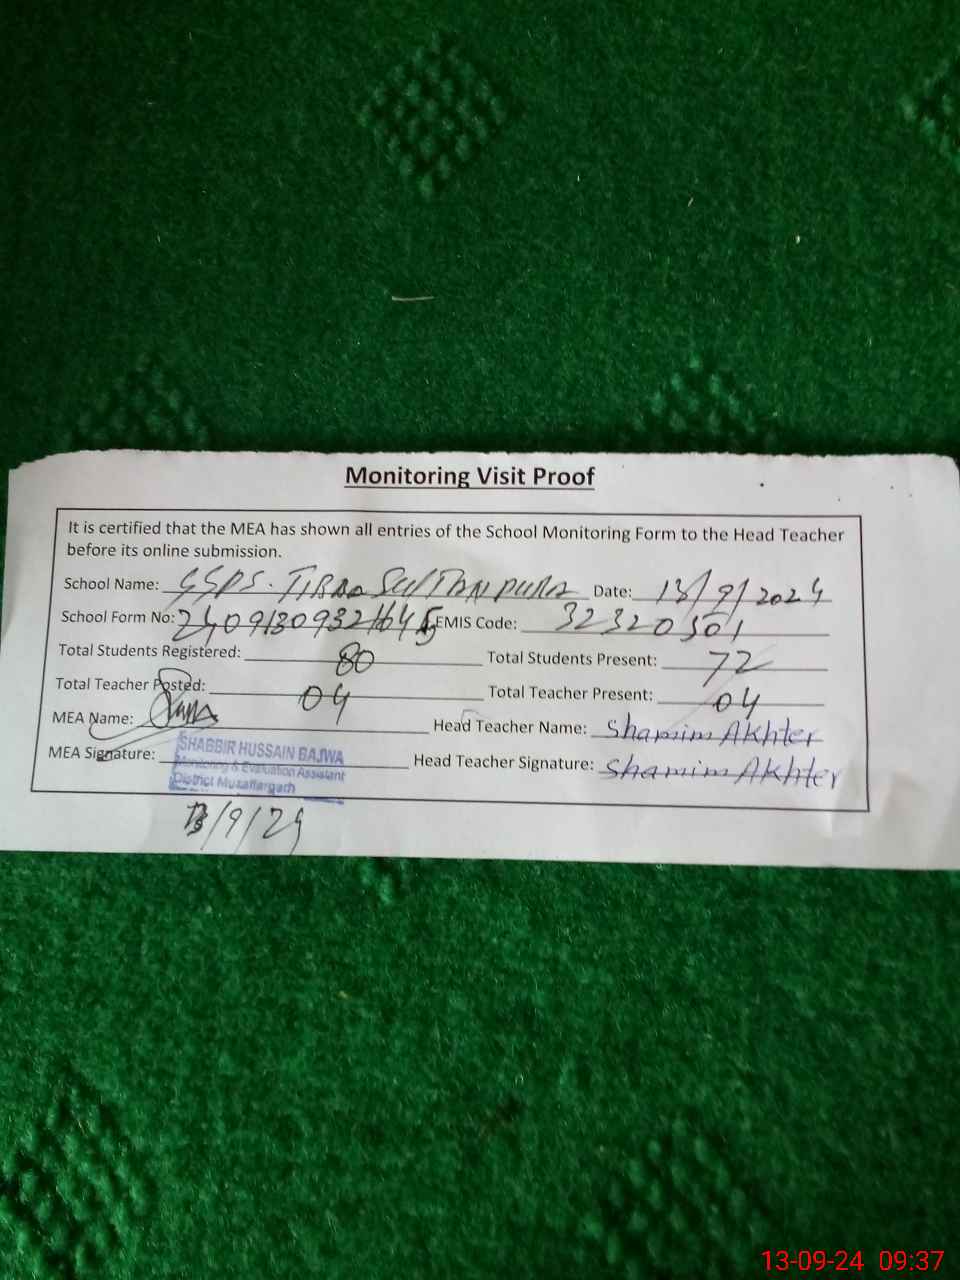 Monitoring Visit Proof
It is certified that the MEA has shown all entries of the School Monitoring Form to the Head Teacher
before its online submission.
School Name: GSPS. TIBBA SULTAN PURA Date: 13/9/2024
School Form No: EMIS Code: 32320501
Total Students Registered: 80 Total Students Present: 72
Total Teacher Posted: 04 Total Teacher Present: 04
MEA Name: Head Teacher Name: Shamim Akhter
MEA Signature: Head Teacher Signature: Shamim Akhter
SHABBIR HUSSAIN BAJWA
Monitoring & Evaluation Assistant
District Muzaffargarh
13/9/24
13-09-24 09:37